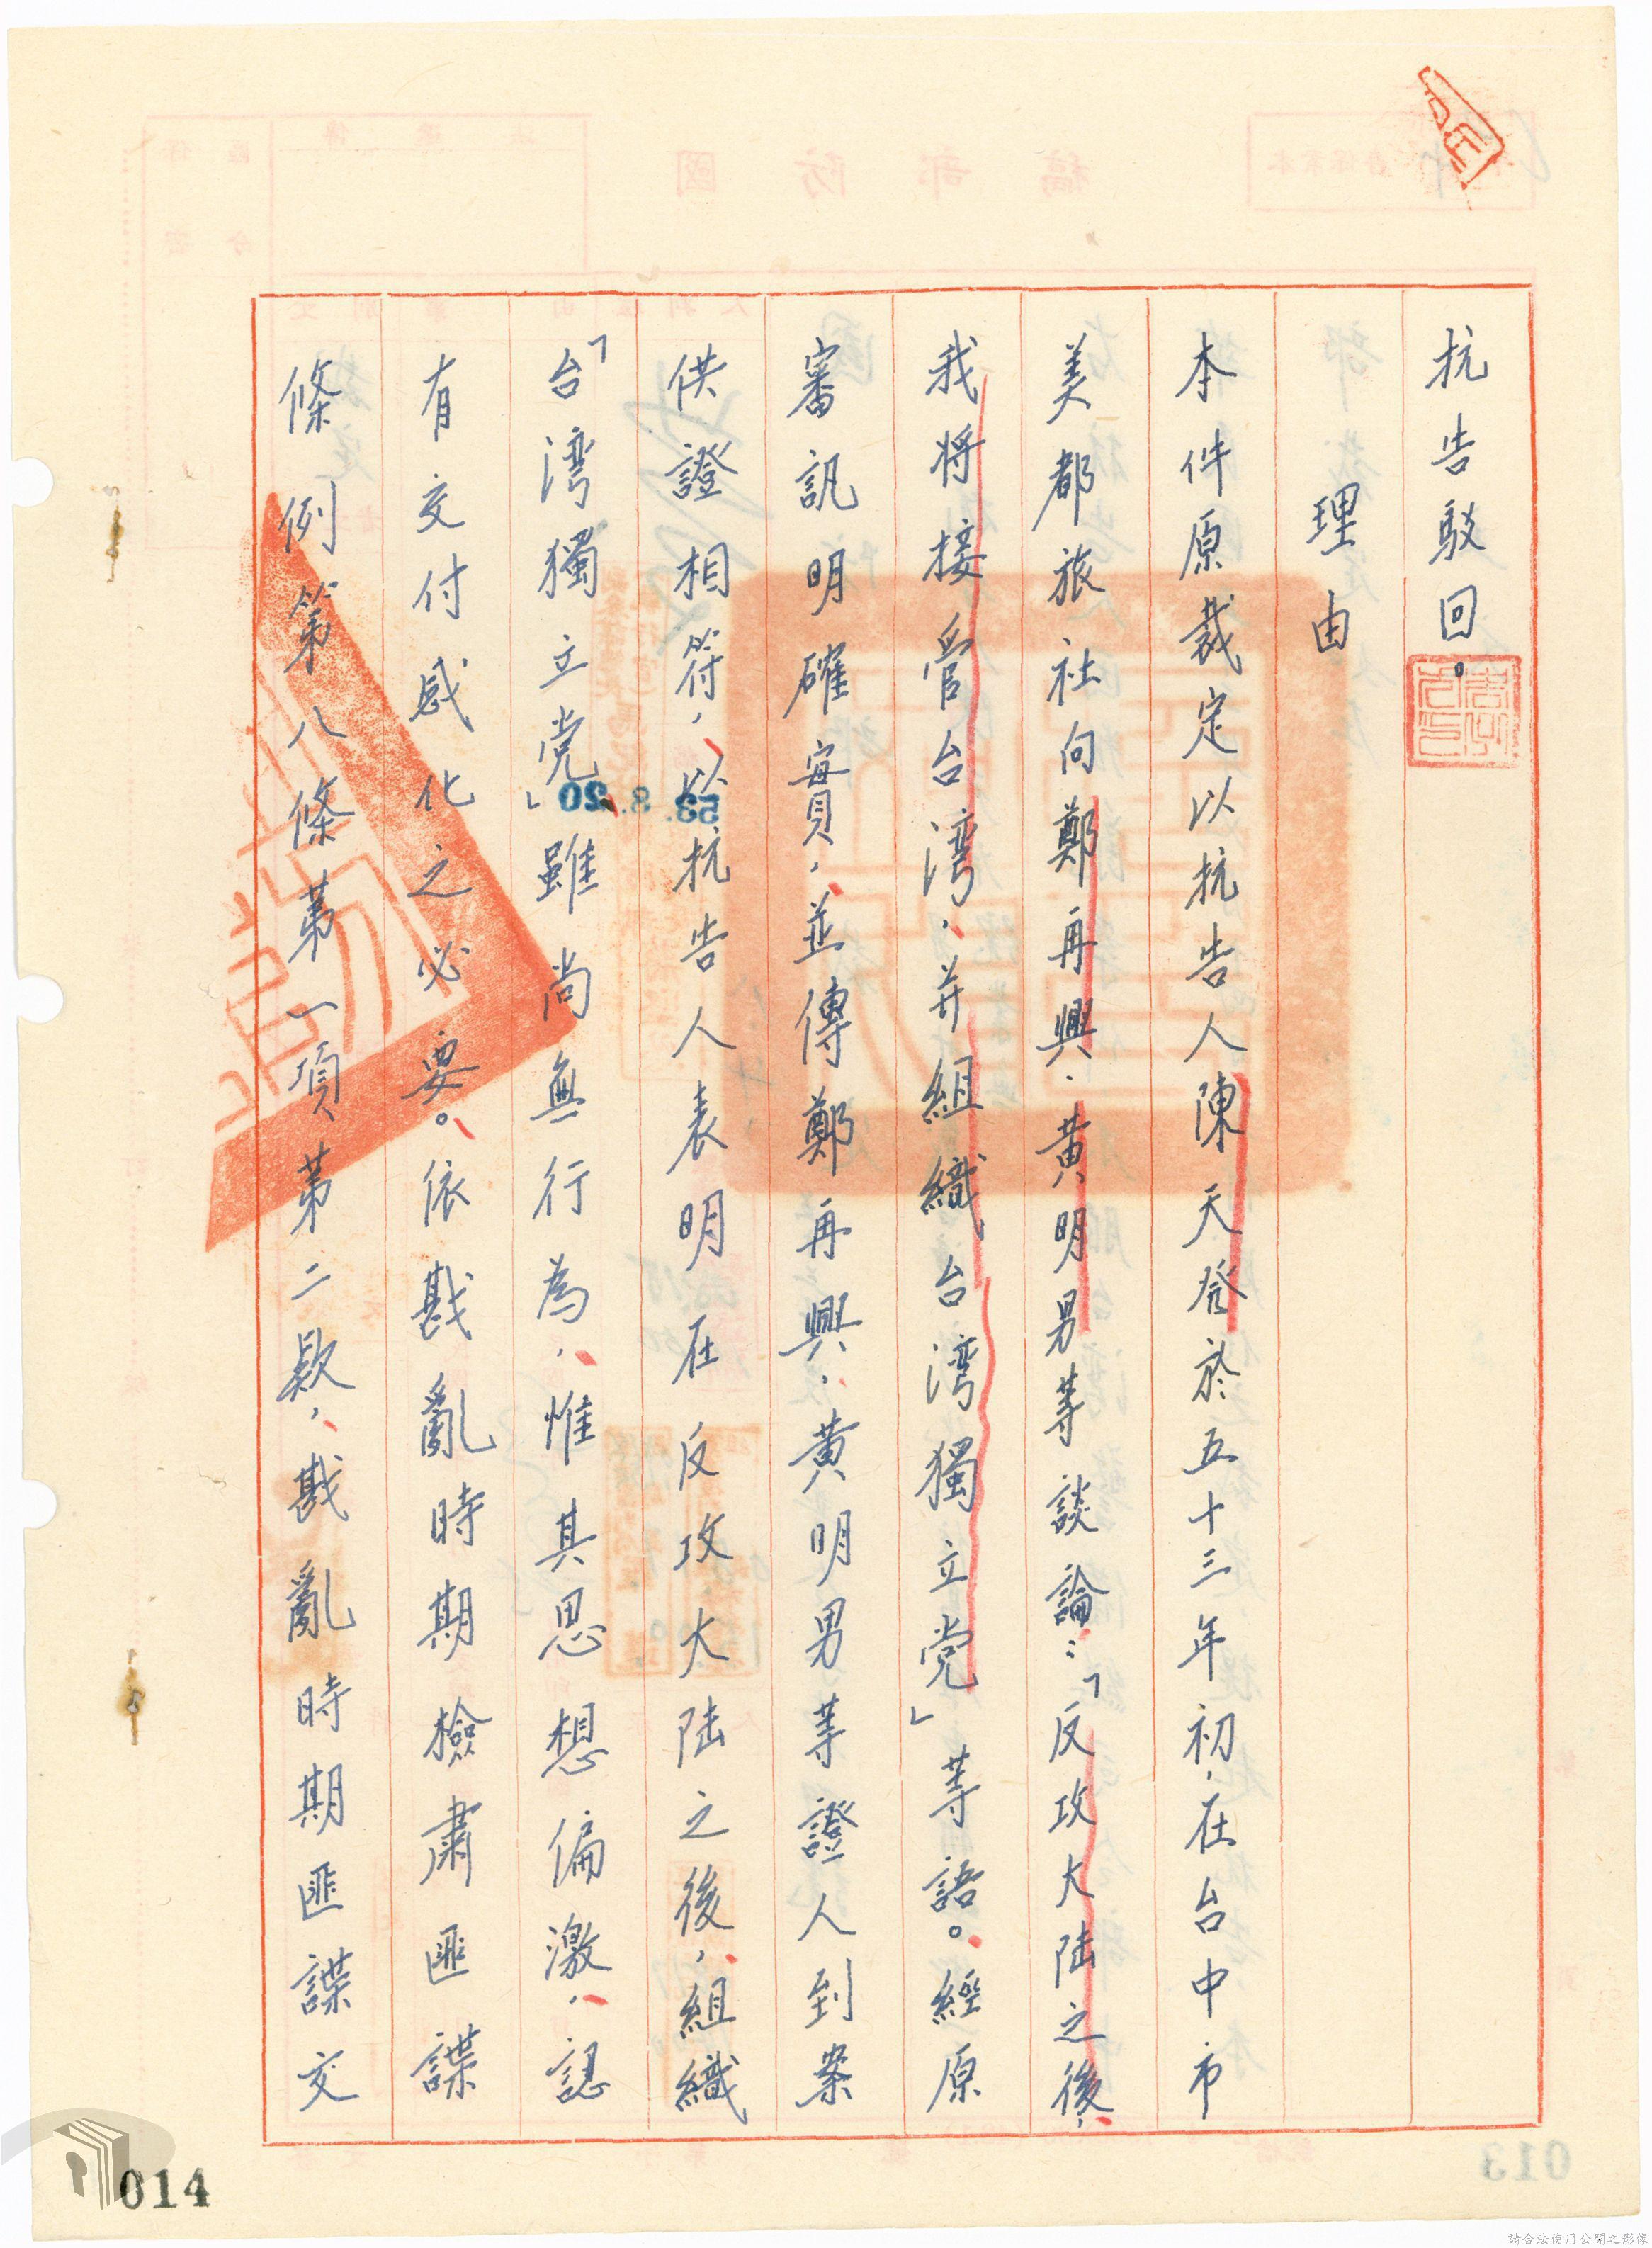 抗告駁回。
理由
本件原裁定以抗告人陳天發於五十三年初,在台中市
美都旅社向鄭再興.黃明男等談論:「反攻大陸之後,
我將接管台湾,并組織台湾獨立党」等語。經原
審訊明確實,並傳鄭再興.黃明男等證人到案
供證相符,以抗告人表明在反攻大陸之後,組織
「台湾獨立党」雖尚無行為,惟其思想偏激,認
有交付感化之必要。依戡亂時期檢肅匪諜
條例第八條第一項第二款,戡亂時期匪諜交
53. 8. 20
014
013
請合法使用公開之影像